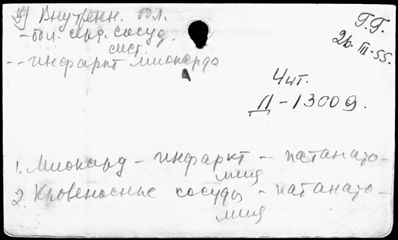 5) Внутренн. бол.
- бол. серд. сосуд.
сист.
-- инфаркт миокарда
Г.Г.
26.III-55.
4 шт.
Д-13009.
1. Миокард - инфаркт -- патанато-
мия
2. Кровеносные сосуды - патанато-
мия